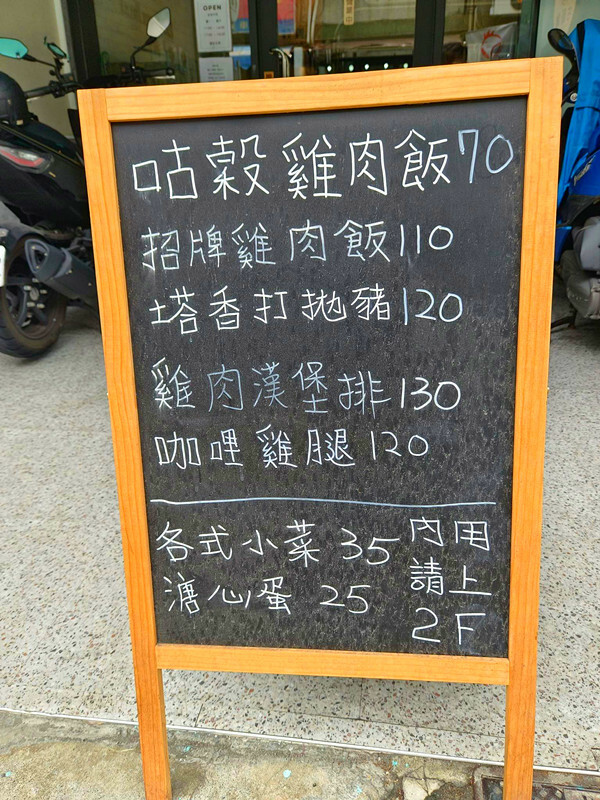 OPEN
咕穀雞肉飯70
招牌雞肉飯110
塔香打拋豬120
雞肉漢堡排130
咖哩雞腿120
各式小菜 35
溏心蛋 25
內用
請上
2F